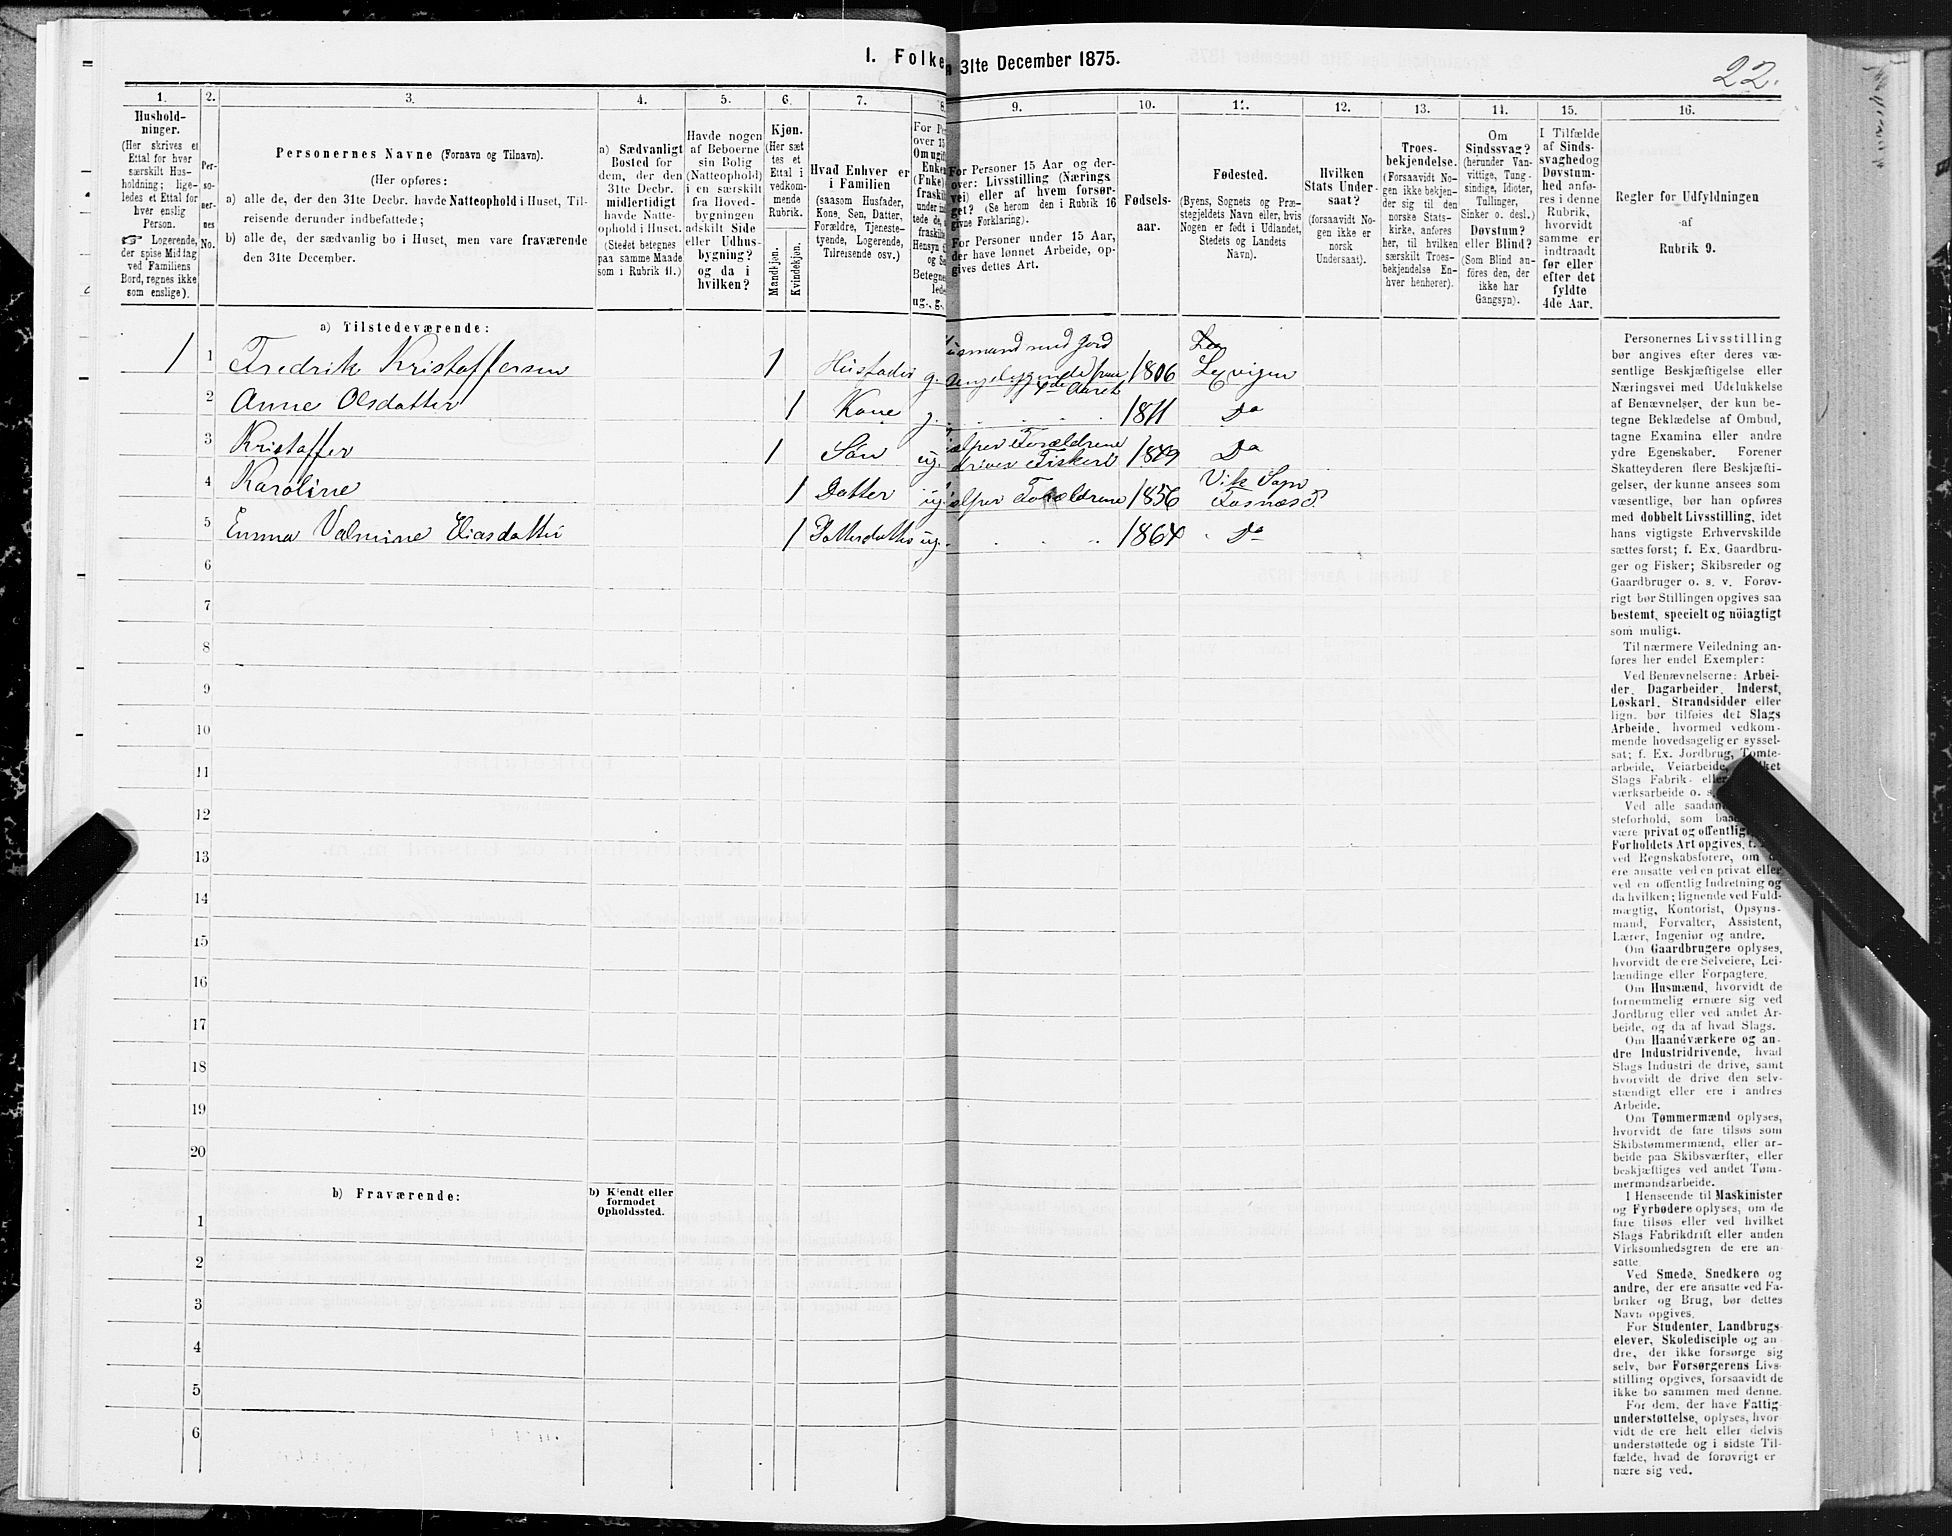 I. Folke
n 31te December 1875.
22.
1.
2.
3.
4.
5.
6.
7.
8.
9.
10.
11.
12.
13.
14.
15.
16.
Hushold-
ninger.
(Her skrives et
Ettal for hver
særskilt Hus-
holdning; lige-
ledes et Ettal for
hver enslig
Person.
☞ Logerende,
der spise Middag
ved Familiens
Bord, regnes ikke
som enslige).
Per-
so-
ner-
nes
No.
Personernes Navne (Fornavn og Tilnavn).
(Her opføres:
a) alle de, der den 31te Decbr. havde Natteophold i Huset, Til-
reisende derunder indbefattede;
b) alle de, der sædvanlig bo i Huset, men vare fraværende
den 31te December.
a) Sædvanligt
Bosted for
dem, der den
31te Decbr.
midlertidigt
havde Natte-
ophold i Huset.
(Stedet betegnes
paa samme Maade
som i Rubrik 11.)
Havde nogen
af Beboerne
sin Bolig
(Natteophold)
i en særskilt
fra Hoved-
bygningen
adskilt Side
eller Udhus-
bygning?
og da i
hvilken?
Kjøn.
(Her sæt
tes et
Ettal i
vedkom-
mende
Rubrik.
Mandkjøn.
Kvindekjøn.
Hvad Enhver er
i Familien
(saasom Husfader,
Kone, Søn, Datter,
Forældre, Tjeneste-
tyende, Logerende,
Tilreisende osv.)
For Pe
over 15
Om ugift
Enke
(Fnke)
fraskil
under ind
tede de,
fraskilt
Hensyn t
og Se
Betegne
lede
ug., g.,
For Personer 15 Aar og der-
over: Livsstilling (Nærings
vei) eller af hvem forsør-
get? (Se herom den i Rubrik 16
givne Forklaring).
For Personer under 15 Aar,
der have lønnet Arbeide, op-
gives dettes Art.
Fødsels-
aar.
Fødested.
(Byens, Sognets og Præ-
stegjeldets Navn eller, hvis
Nogen er født i Udlandet,
Stedets og Landets
Navn).
Hvilken
Stats Under-
saat?
(forsaavidt No-
gen ikke er
norsk
Undersaat).
Troes-
bekjendelse.
(Forsaavidt No-
gen ikke bekjen-
der sig til den
norske Stats-
kirke, anføres
her, til hvilken
særskilt Troes-
bekjendelse En-
hver henhører).
Om
Sindssvag?
(herunder Van-
vittige, Tung-
sindige, Idioter,
Tullinger,
Sinker o. desl.)
Døvstum?
eller Blind?
(Som Blind an-
føres den, der
ikke har
Gangsyn).
I Tilfælde
af Sinds-
svaghed og
Døvstum-
hed anfø-
res i denne
Rubrik,
hvorvidt
samme er
indtraadt
før eller
efter det
fyldte
4de Aar.
Regler for Udfyldningen
af
Rubrik 9.
a) Tilstedeværende:
1 1 Fredrik Kristoffersen 1 Husfader g. 1806
Husmand med Jord
2 Anne Olsdatter 1 Kone g. 1811 Do
3 Kristoffer 1 Søn ug. 1849 Do
drives Fiskeri
4 Karoline 1 Datter ug. hjelper Forældrene 1856
Vik Sogn
5 Emma Valmine Eliasdatter 1 Datterdatter ug. 1864 Do
6
7
8
9
10
11
12
13
14
15
16
17
18
19
20
b) Fraværende:
b) Kjendt eller
formodet
Opholdssted.
1
2
3
4
5
6
Personernes Livsstilling
bør angives efter deres væ-
sentlige Beskjæftigelse eller
Næringsvei med Udelukkelse
af Benævnelser, der kun be-
tegne Beklædelse af Ombud,
tagne Examina eller andre
ydre Egenskaber. Forener
Skatteyderen flere Beskjæfti-
gelser, der kunne ansees som
væsentlige, bør han opføres
med dobbelt Livsstilling, idet
hans vigtigste Erhvervskilde
sættes først; f. Ex. Gaardbru-
ger og Fisker; Skibsreder og
Gaardbruger o. s. v. Forøv-
rigt bør Stillingen opgives saa
bestemt, specielt og nöiagtigt
som muligt.
Til nærmere Veiledning an-
føres her endel Exempler:
Ved Benævnelserne: Arbei-
der, Dagarbeider, Inderst,
Løskarl, Strandsidder eller
lign. bør tilføies det Slags
Arbeide, hvormed vedkom-
mende hovedsagelig er syssel-
sat; f. Ex. Jordbrug, Tomte-
arbeide, Veiarbeide,
Slags Fabrik- eller
værksarbeide o. s.
Ved alle saadan
steforhold, som
være privat og offentlig,
Forholdets Art opgives, f.
ved Regnskabsførere, om
ere ansatte ved en privat eller
ved en offentlig Indretning og
da hvilken; lignende ved Fuld-
mægtig, Kontorist, Opsyns-
mand, Forvalter, Assistent,
Lærer, Ingeniør og andre.
Om Gaardbrugere oplyses,
hvorvidt de ere Selveiere, Lei-
lændinge eller Forpagtere.
Om Husmænd, hvorvidt de
fornemmelig ernære sig ved
Jordbrug eller ved andet Ar-
beide, og da af hvad Slags.
Om Haandværkere og an-
dre Industridrivende, hvad
Slags Industri de drive, samt
hvorvidt de drive den selv-
stændigt eller ere i andres
Arbeide.
Om Tømmermænd oplyses,
hvorvidt de fare tilsøs som
Skibstømmermænd, eller ar-
beide paa Skibsværfter, eller
beskjæftiges ved andet Tøm-
mermandsarbeide.
I Henseende til Maskinister
og Fyrbødere oplyses, om de
fare tilsøs eller ved hvilket
Slags Fabrikdrift eller anden
Virksomhedsgren de ere an-
satte.
Ved Smede, Snedkere og
andre, der ere ansatte ved Fa-
briker og Brug, bør dettes
Navn opgives.
For Studenter, Landbrugs-
elever, Skoledisciple og an-
dre, der ikke forsørge sig
selv, bør Forsørgerens Livs-
stilling opgives, forsaavidt de
ikke bo sammen med denne.
For dem, der have Fattig-
understøttelse, oplyses, hvor-
vidt de ere helt eller delvis
understøttede og i sidste Til-
fælde, hvad de forøvrigt er
nære sig ved.